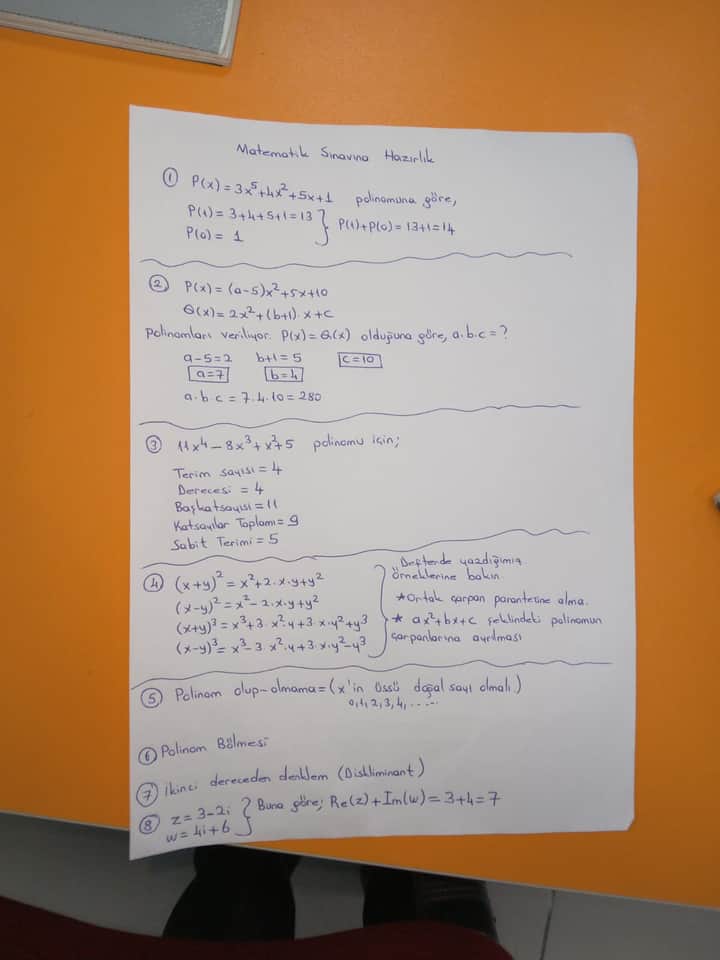 Matematik Sınavına Hazırlık
① P(x) = 3x⁵+4x²+5x+1 polinomuna göre,
P(1) = 3+4+5+1=13
P(0) = 1
} P(1)+P(0) = 13+1=14
② P(x) = (a-5)x²+5x+10
Q(x) = 2x²+(b+1).x+c
polinomları veriliyor. P(x) = Q(x) olduğuna göre, a.b.c = ?
a-5=2 b+1=5 c=10
a=7 b=4
a.b.c = 7.4.10 = 280
③ 11x⁴-8x³+x²+5 polinomu için;
Terim sayısı = 4
Derecesi = 4
Başkatsayısı = 11
Katsayılar Toplamı = 9
Sabit Terimi = 5
④ (x+y)² = x²+2.x.y+y²
(x-y)² = x²-2.x.y+y²
(x+y)³ = x³+3.x².y+3.x.y²+y³
(x-y)³ = x³-3.x².y+3.x.y²-y³
Defterde yazdığımız
örneklerine bakın.
★Ortak çarpan parantezine alma.
★ ax²+bx+c şeklindeki polinomun
çarpanlarına ayrılması
⑤ Polinom olup-olmama = (x'in üssü doğal sayı olmalı)
0,1,2,3,4, .....
⑥ Polinom Bölmesi
⑦ İkinci dereceden denklem (Diskliminant)
⑧ z = 3-2i
w = 4i+6
} Buna göre; Re(z)+Im(w) = 3+4 = 7